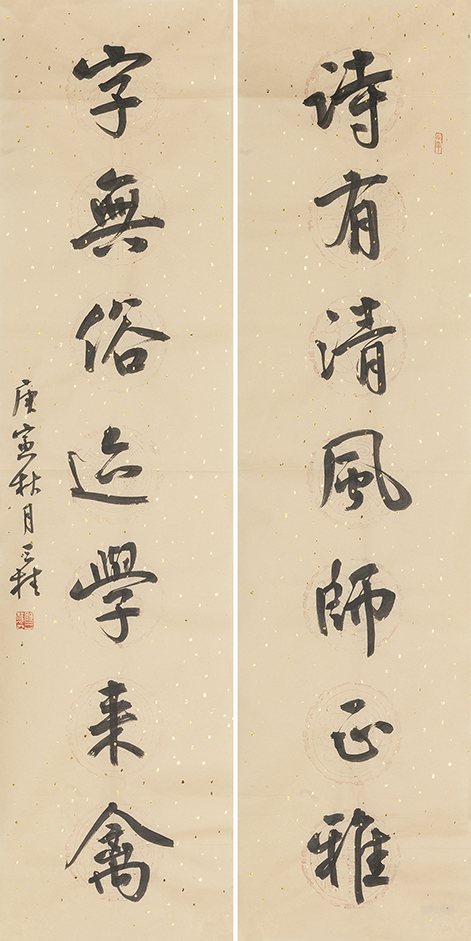 诗有清風師正雅
字無俗迹學来禽
庚寅秋月三桂